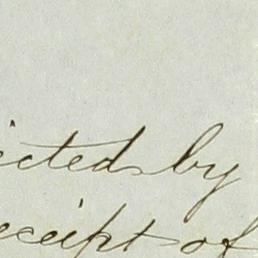 icted by
eceipt of